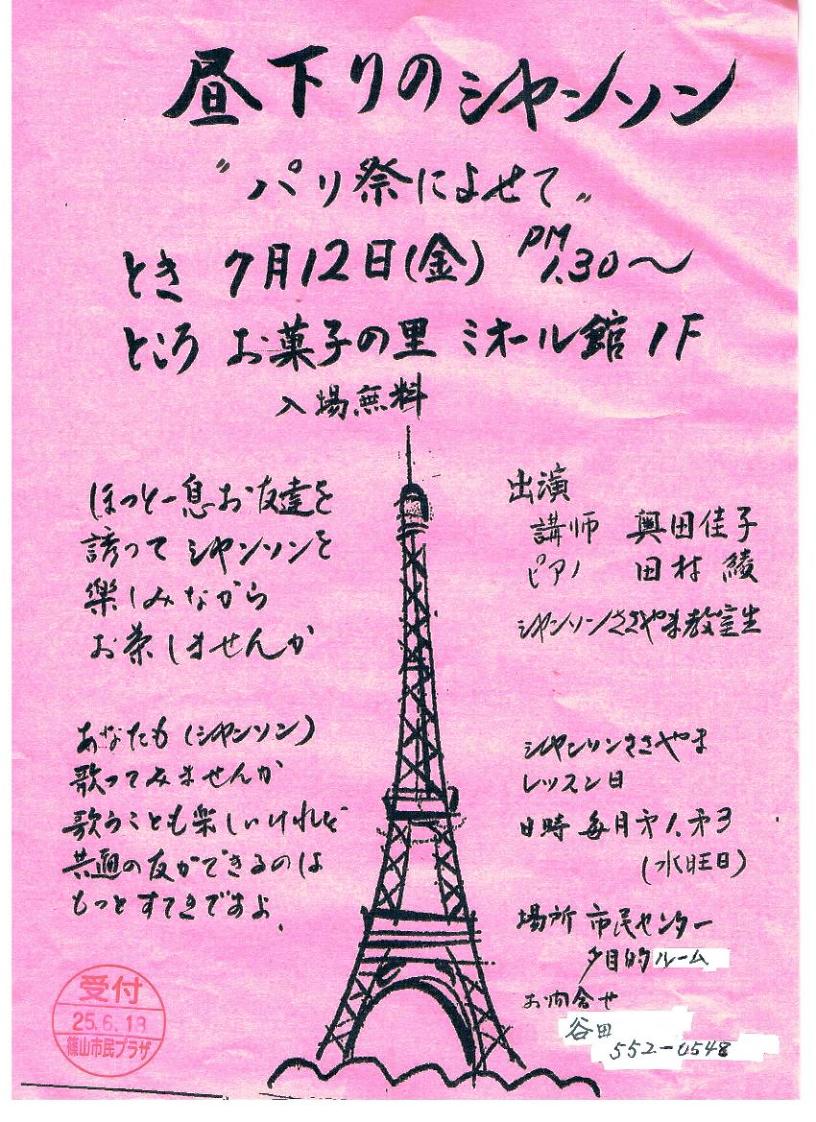 昼下りのシャンソン
〝パリ祭によせて〟
とき 7月12日(金) PM 1.30〜
ところ お菓子の里 ミオール館 1F
入場無料
ほっと一息お友達を
誘って シャンソンを
楽しみながら
お茶しませんか
あなたも(シャンソン)
歌ってみませんか
歌うことも楽しいけれど
共通の友ができるのは
もっとすてきですよ.
出演
講師 奥田佳子
ピアノ 田村 綾
シャンソンささやま教室生
シャンソンささやま
レッスン日
日時 毎月才1.才3
(水旺日)
場所 市民センター
多目的ルーム
お問合せ
谷田
552-0548
受付
25.6.13
篠山市民プラザ